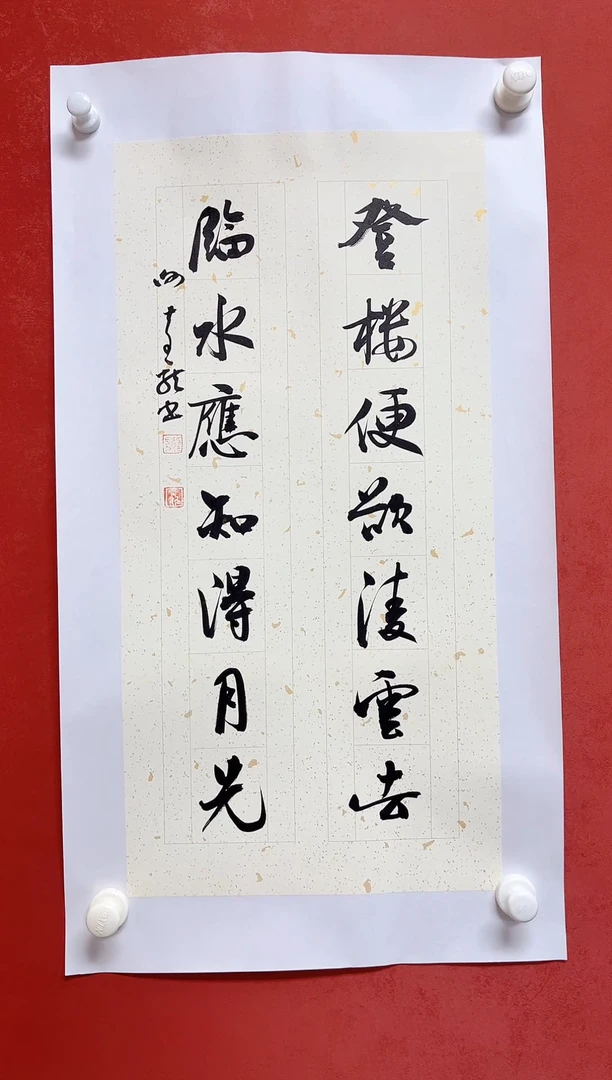 登樓便欲淩雲去
臨水應知得月光